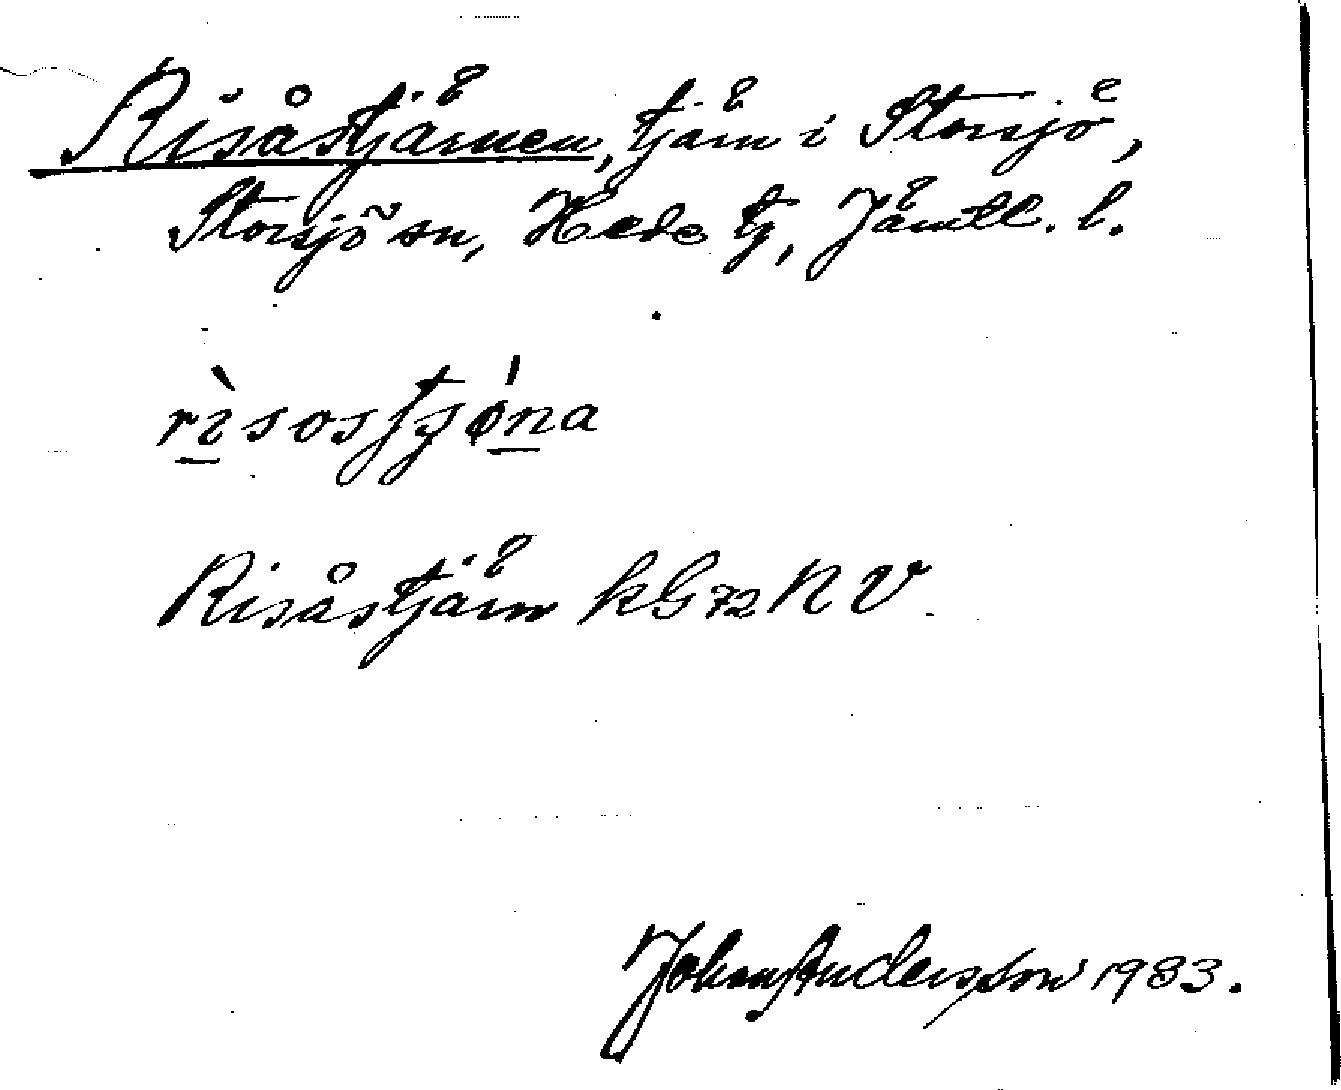 Risåstjärnen, tjärn i Storsjö,
Storsjö sn, Hede tg, Jämtl. l.
rìsostjǿna
Risåstjärn kG72 NV
Johan Andersson 1983.